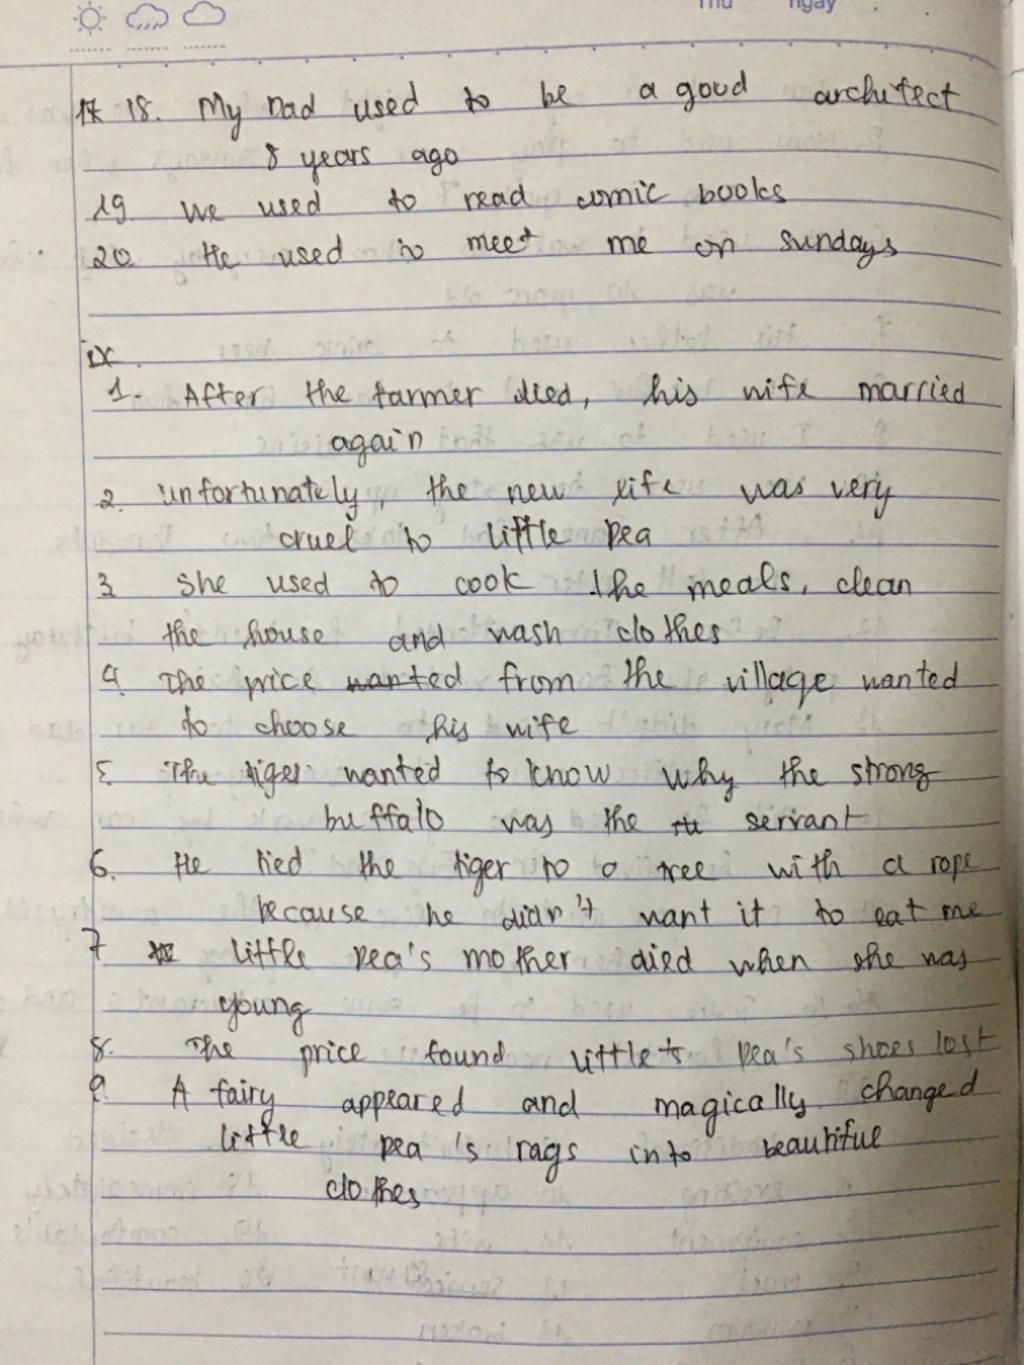 Thứ ngày
18. My Dad used to be a good architect
8 years ago
19 we used to read comic books
20 He used to meet me on sundays
IX.
1. After the farmer died, his wife married
again
2. unfortunately, the new life was very
cruel to little pea
3 she used to cook the meals, clean
the house and wash clothes
4. The price wanted from the village wanted
to choose his wife
5 The tiger wanted to know why the strong
buffalo was the servant
6. He tied the tiger to a tree with a rope
because he didn't want it to eat me
7 little pea's mother died when she was
young
8. The price found little's pea's shoes lost
9. A fairy appeared and magically changed
little pea's rags into beautiful
clothes